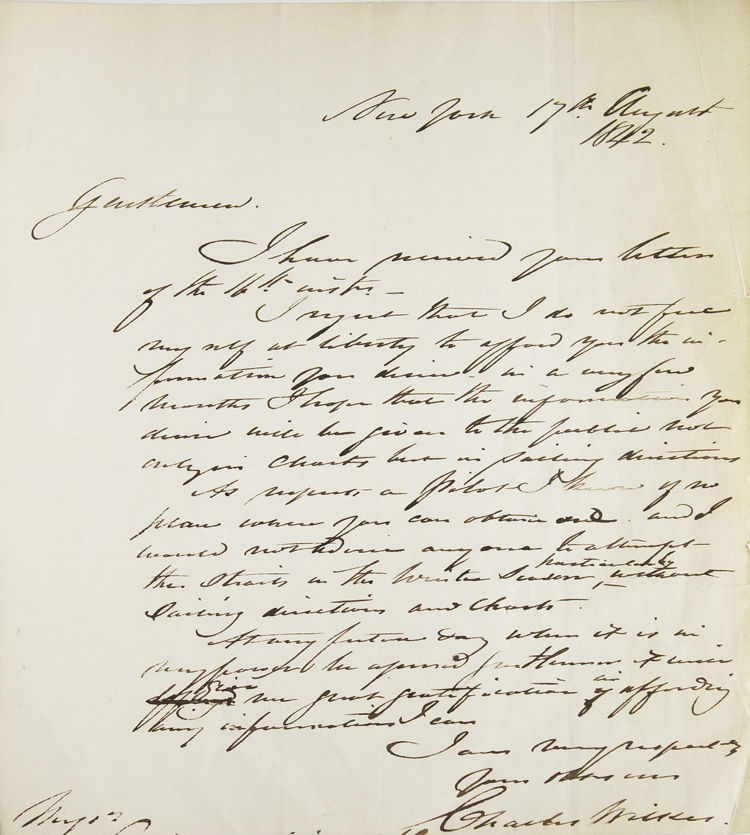 New York 17th August
1842.
Gentlemen.
I have received your letter
of the 16th inst. –
I regret that I do not feel
my self at liberty to afford you the in-
formation you desire. in a very few
months I hope that the information you
desire will be given to the public not
only in Charts but in sailing directions
As respects a Pilot I know of no
place where you can obtain one. and I
would not advise anyone to attempt
the Straits in the Winter Season, particularly without
Sailing directions and Charts.
At any future day when it is in
my power be assured gentlemen it will
give me great gratification in affording
any information I can
I am very respectly
Your obt
Charles Wilkes.